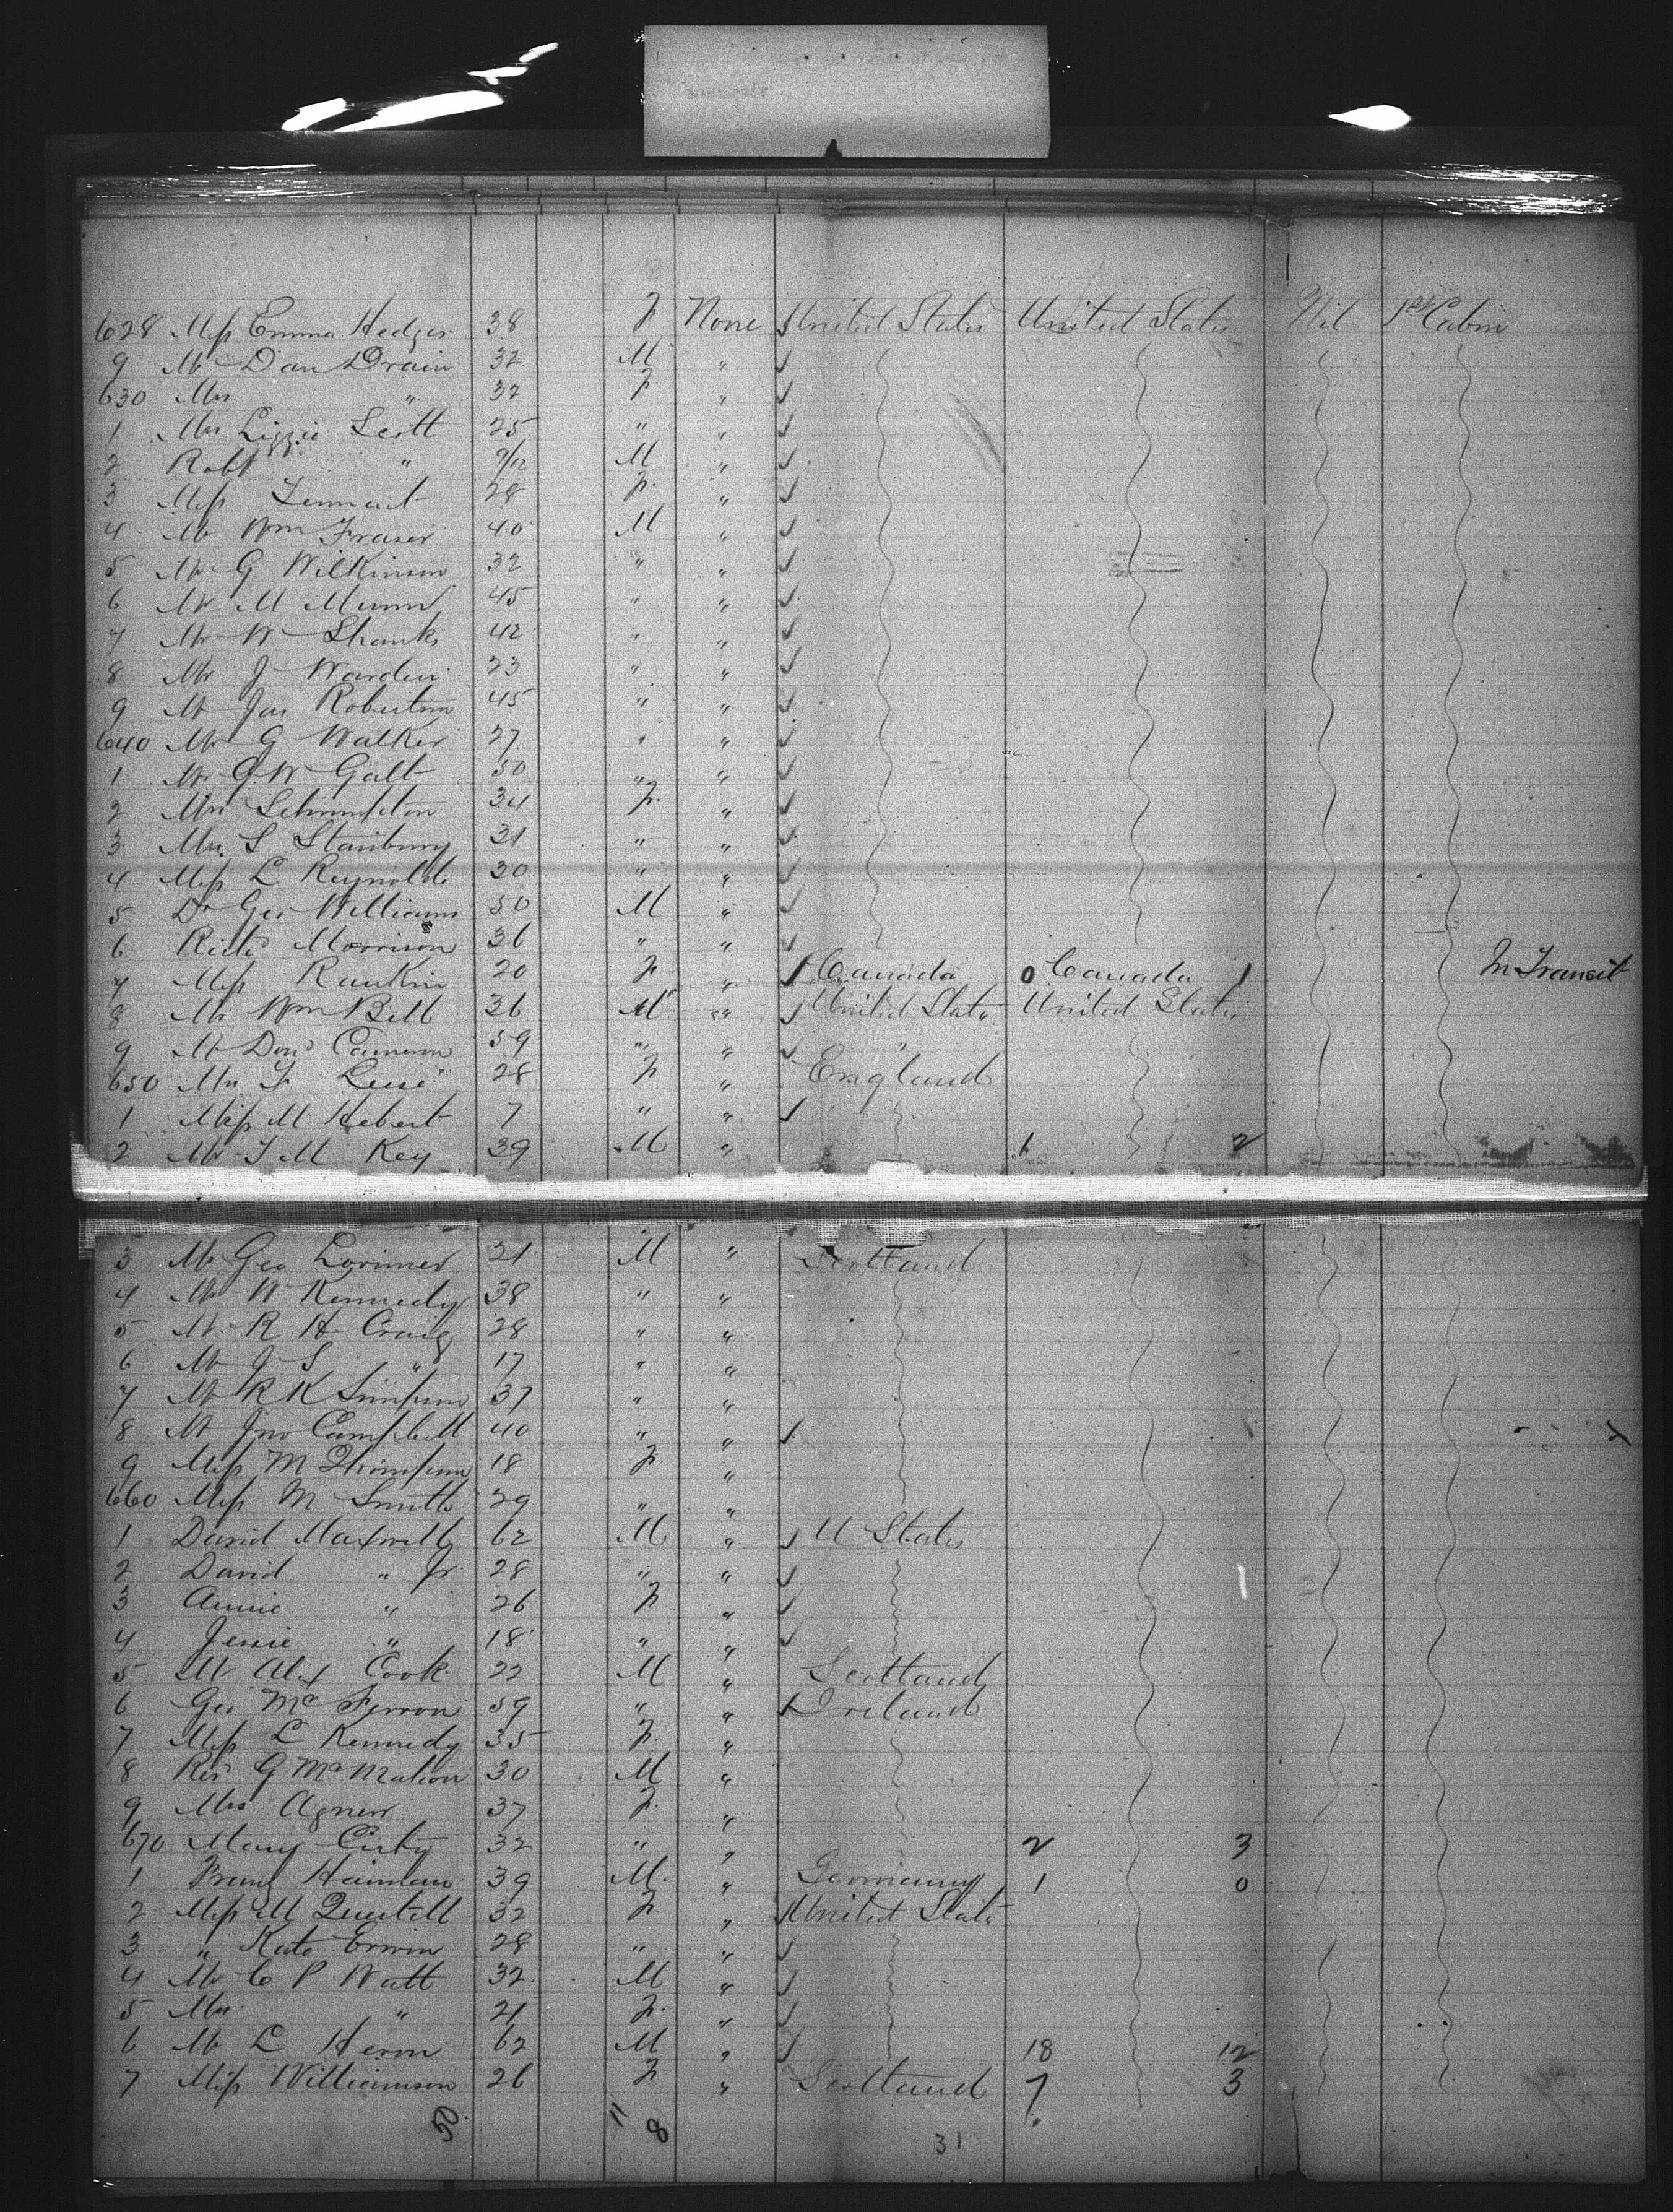 628 Miss Emma Hedges 38 F None ✓ United States United States Nil 1st Cabin
9 Mr Dan Drain 32 M " ✓
630 Mrs " 32 F " ✓
1 Mrs Lizzie Scott 25 " " ✓
2 Robt " 9/12 M " ✓
3 Miss Tennant 28 F. " ✓
4 Mr Wm Fraser 40 M " ✓
5 Mr G Wilkinson 32 " " ✓
6 Mr M Munn 45 " " ✓
7 Mr W Shanks 42 " " ✓
8 Mr J Warden 23 " " ✓
9 Mr Jas Robertson 45 " " ✓
640 Mr G Walker 27 " " ✓
1 Mr G W Galt 50 " " ✓
2 Mrs 34 F. " ✓
3 Mrs. S Stanbury 31 " " ✓
4 Miss L Reynolds 30 " " ✓
5 Dr Geo Williams 50 M " ✓
6 Richd Morrison 36 " " ✓
7 Miss Rankin 20 F " ✓ Canada 0 Canada 1 In Transit
8 Mr Wm Bell 36 M " ✓ United States United States
9 Mr Dond Cameron 59 " " ✓ "
650 Mrs F 28 F " England
1 Miss M Hebert 7 " " ✓
2 Mr T M Key 39 M " 1 2
3 Mr Geo Lorimer 21 M " Scotland
4 Mr W Kennedy 38 " "
5 Mr R H Craig 28 " "
6 Mr J S " 17 " "
7 Mr R K Simpson 37 " "
8 Mr Jno Campbell 40 " " ✓
9 Miss M Thompson 18 F. "
660 Miss M Smith 29 " "
1 David Maxwell 62 M " ✓ U States
2 David " Jr 28 " " ✓
3 Annie " 26 F " ✓
4 Jessie " 18 " " ✓
5 Mr Alex Cook 22 M " Scotland
6 Geo Mc Ferron 59 " " Ireland
7 Miss L Kennedy 35 F. "
8 Revd G McMahon 30 M "
9 Mrs Agnew 37 F. "
670 Mary 32 " " 2 3
1 Franz 39 M. " Germany 1 0
2 Miss M 32 F " ✓ United States
3 " Kate Erwin 28 " " ✓
4 Mr C P Watt 32 M " ✓
5 Mrs " 21 F. " ✓
6 Mr L Heron 62 M " ✓ 18 12
7 Miss Williamson 26 F " Scotland 7 3
50 11 8 31